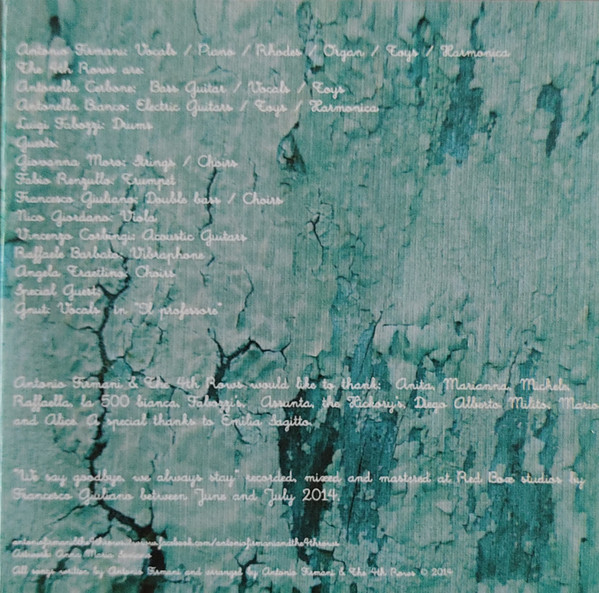 Antonio Firmani: Vocals / Piano / Rhodes / Organ / Toys / Harmonica
The 4th Rows are:
Antonella Cerbone: Bass Guitar / Vocals / Toys
Antonella Bianco: Electric Guitars / Toys / Harmonica
Luigi Fabozzi: Drums
Guests:
Giovanna Moro: Strings / Choirs
Fabio Renzullo: Trumpet
Francesco Giuliano: Double bass / Choirs
Nico Giordano: Viola
Vincenzo Corlengi: Acoustic Guitars
Raffaele Barbato: Vibraphone
Angela Traettino: Choirs
Special Guest
Gnut: Vocals in "Il professore"
Antonio Firmani & The 4th Rows would like to thank: Anita, Marianna, Michele,
Raffaella, la 500 bianca, Fabozzi's, Assunta, the Hickory's, Diego Alberto Milito, Mario
and Alice. A special thanks to Emilia Sagitto.
"We say goodbye, we always stay" recorded, mixed and mastered at Red Box studios by
Francesco Giuliano between June and July 2014.
Artwork: Anna Maria
All songs written by Antonio Firmani and arranged by Antonio Firmani & The 4th Rows © 2014